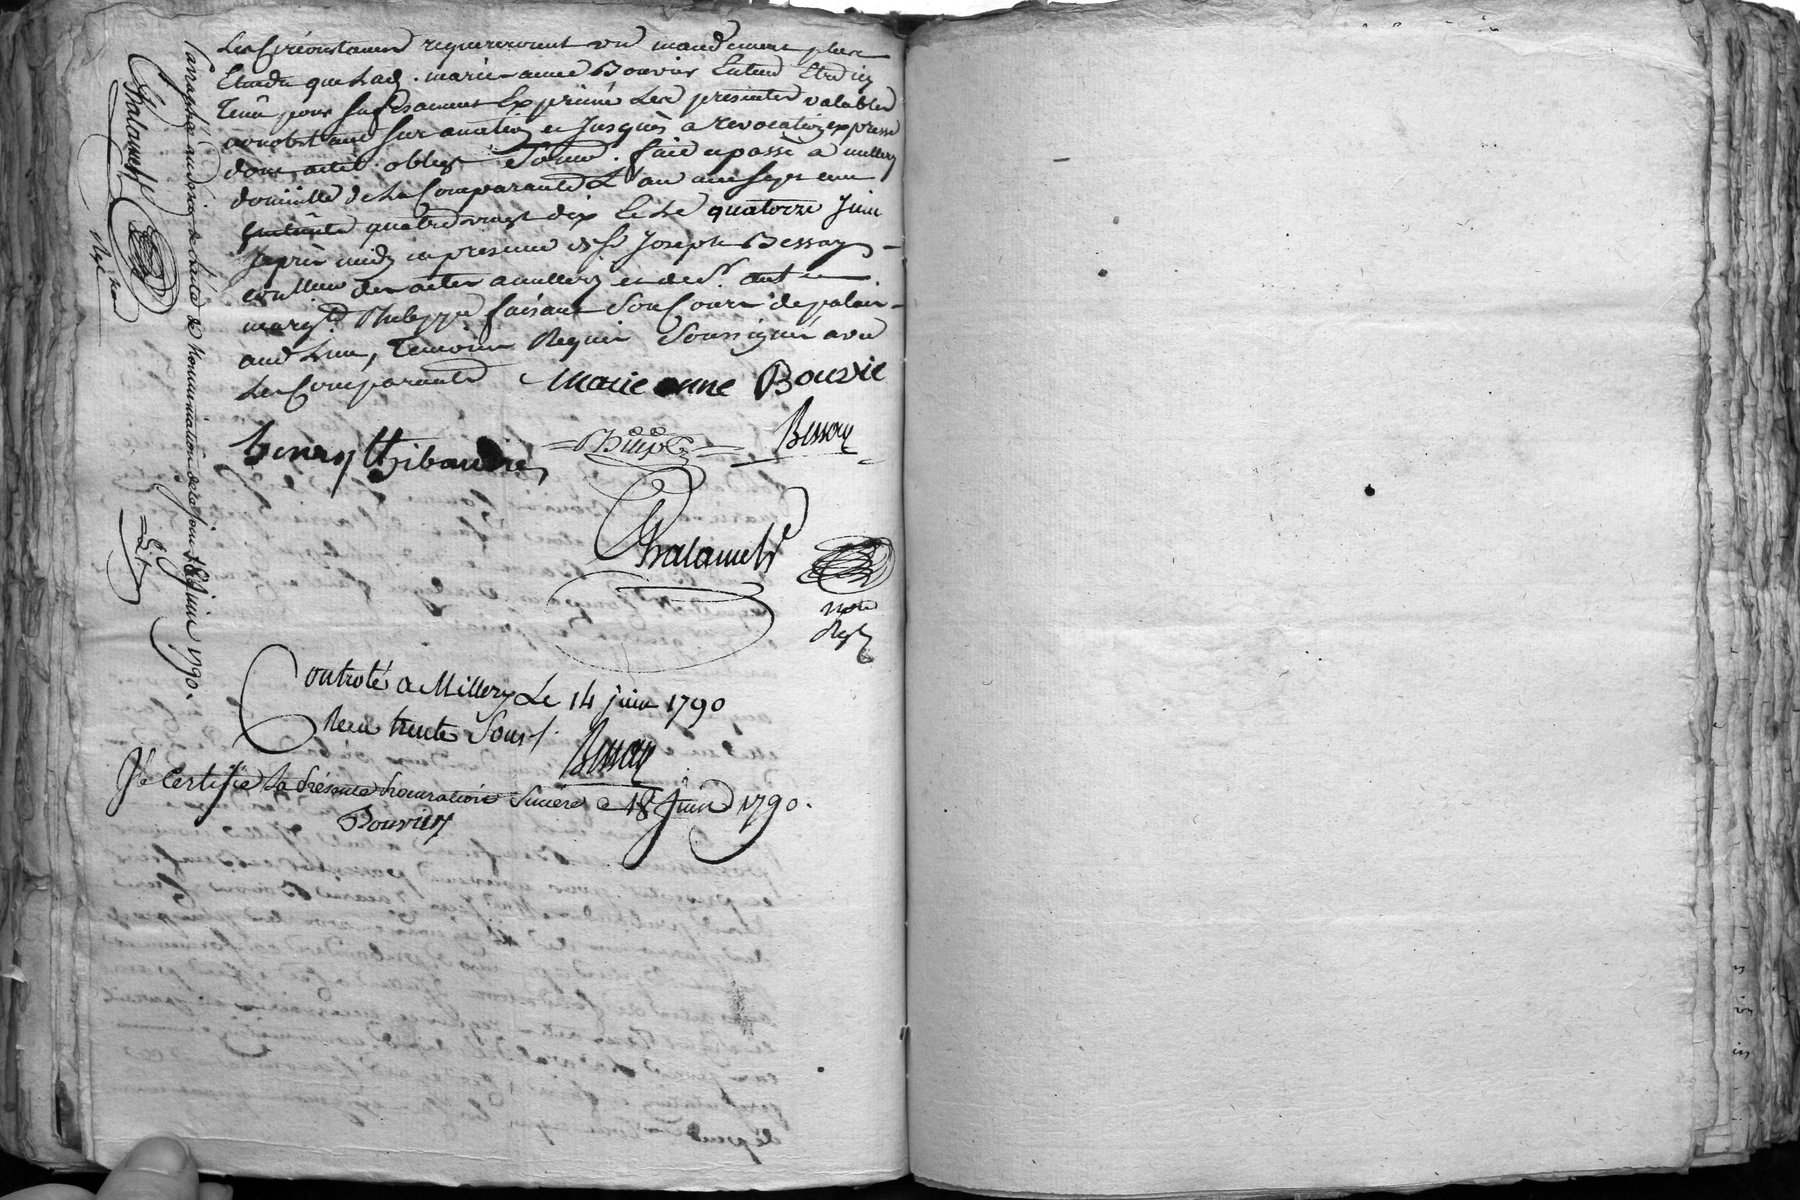 Les Circonstances requereroient un mandement plus
Etendu que lad. marie anne Bouvier Entend Etre icy
Tenu pour sufisament Exprimé Les presentes valables
nonobstant surannation et Jusques a revocation expresse
dont acte oblig. Soum. fait et passé a millery
domicille de la Comparante L'an mil sept cent
quatre vingt dix le quatorze Juin
apres midy en presence de Sr. Joseph Bessay
controlleur des actes a millery et de Sr.
Philippe faisant son Cours de
aud. Lieu, Temoins Requis Soussignés avec
Les Comparants Marie anne Bouvie
henry thibaudie
Philip
Bessay
Chalamel
note
Controlé a Millery Le 14 juin 1790
Recu trente Sous
Bessay
Je Certifie la présente procuration Sincère ce 18 Juin 1790.
Bouvier
Parraphé au desir de l'acte de Nommination de ce jour 18 juin 1790.
Chalamel